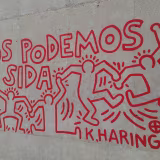 S PODEMOS
SIDA
K.HARING